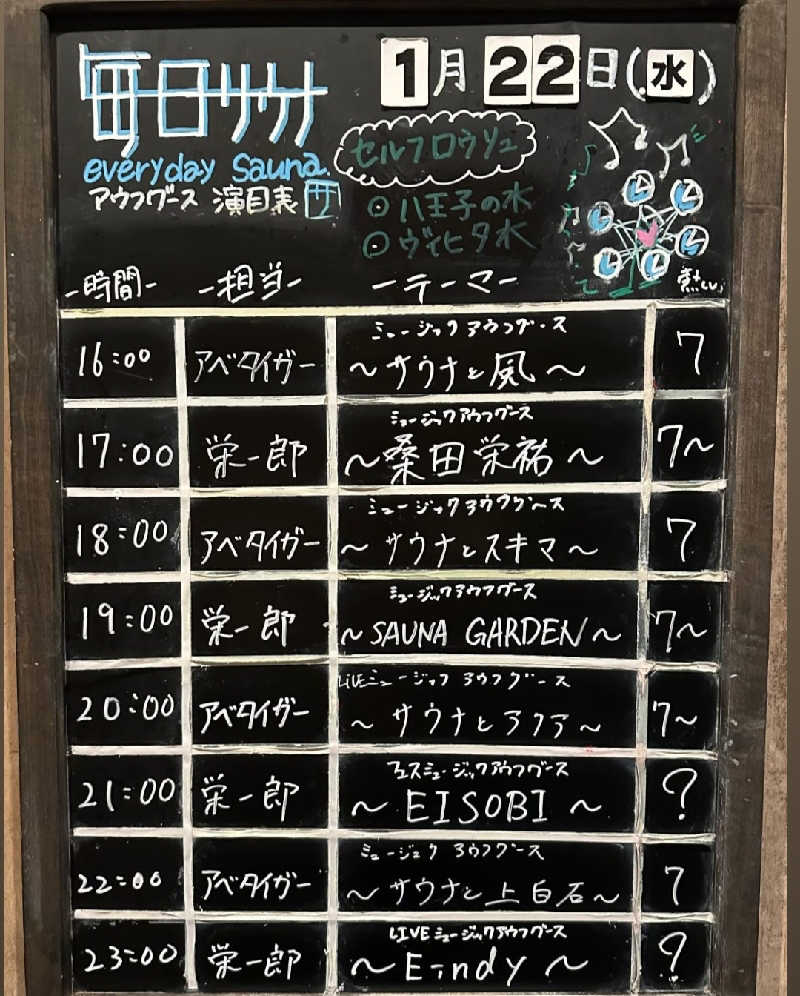 毎日サウナ
1月22日(水)
everyday sauna.
アウフグース 演目表 サ
セルフロウリュ
◎八王子の水
◎ヴィヒタ水
-時間- -担当- -テーマ- 熱い
ミュージックアウフグース
16:00 アベタイガー ～サウナと風～ 7
ミュージックアウフグース
17:00 栄一郎 ～桑田栄祐～ 7～
ミュージックアウフグース
18:00 アベタイガー ～サウナとスキマ～ 7
ミュージックアウフグース
19:00 栄一郎 ～SAUNA GARDEN～ 7～
LiVEミュージックアウフグース
20:00 アベタイガー ～サウナとアクア～ 7～
フェスミュージックアウフグース
21:00 栄一郎 ～EISOBI～ ?
ミュージックアウフグース
22:00 アベタイガー ～サウナと上白石～ 7
LIVEミュージックアウフグース
23:00 栄一郎 ～E-indy～ ?